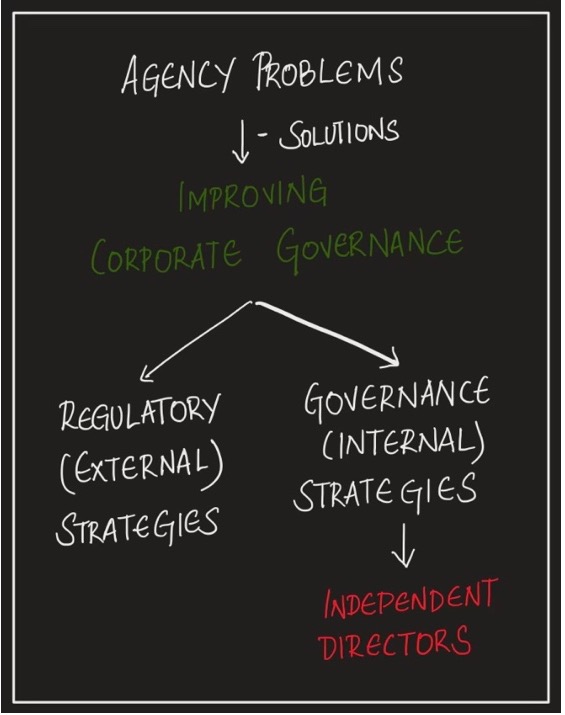 AGENCY PROBLEMS
- SOLUTIONS
IMPROVING
CORPORATE GOVERNANCE
REGULATORY
(EXTERNAL)
STRATEGIES
GOVERNANCE
(INTERNAL)
STRATEGIES
INDEPENDENT
DIRECTORS